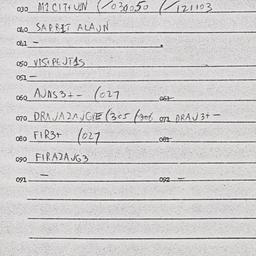 030 MICITIUN (/030050 (/121103
040 SAPRET ALAJN
041 -
050 VISIPEJTAS
051 -
060 AJNS3+- (027 061
070 DRAJAZAJGIE (305 (306 072 DRAJ3+-
080 FIR3+ (027 081
090 FIRAZAJG3
091 - 092 -